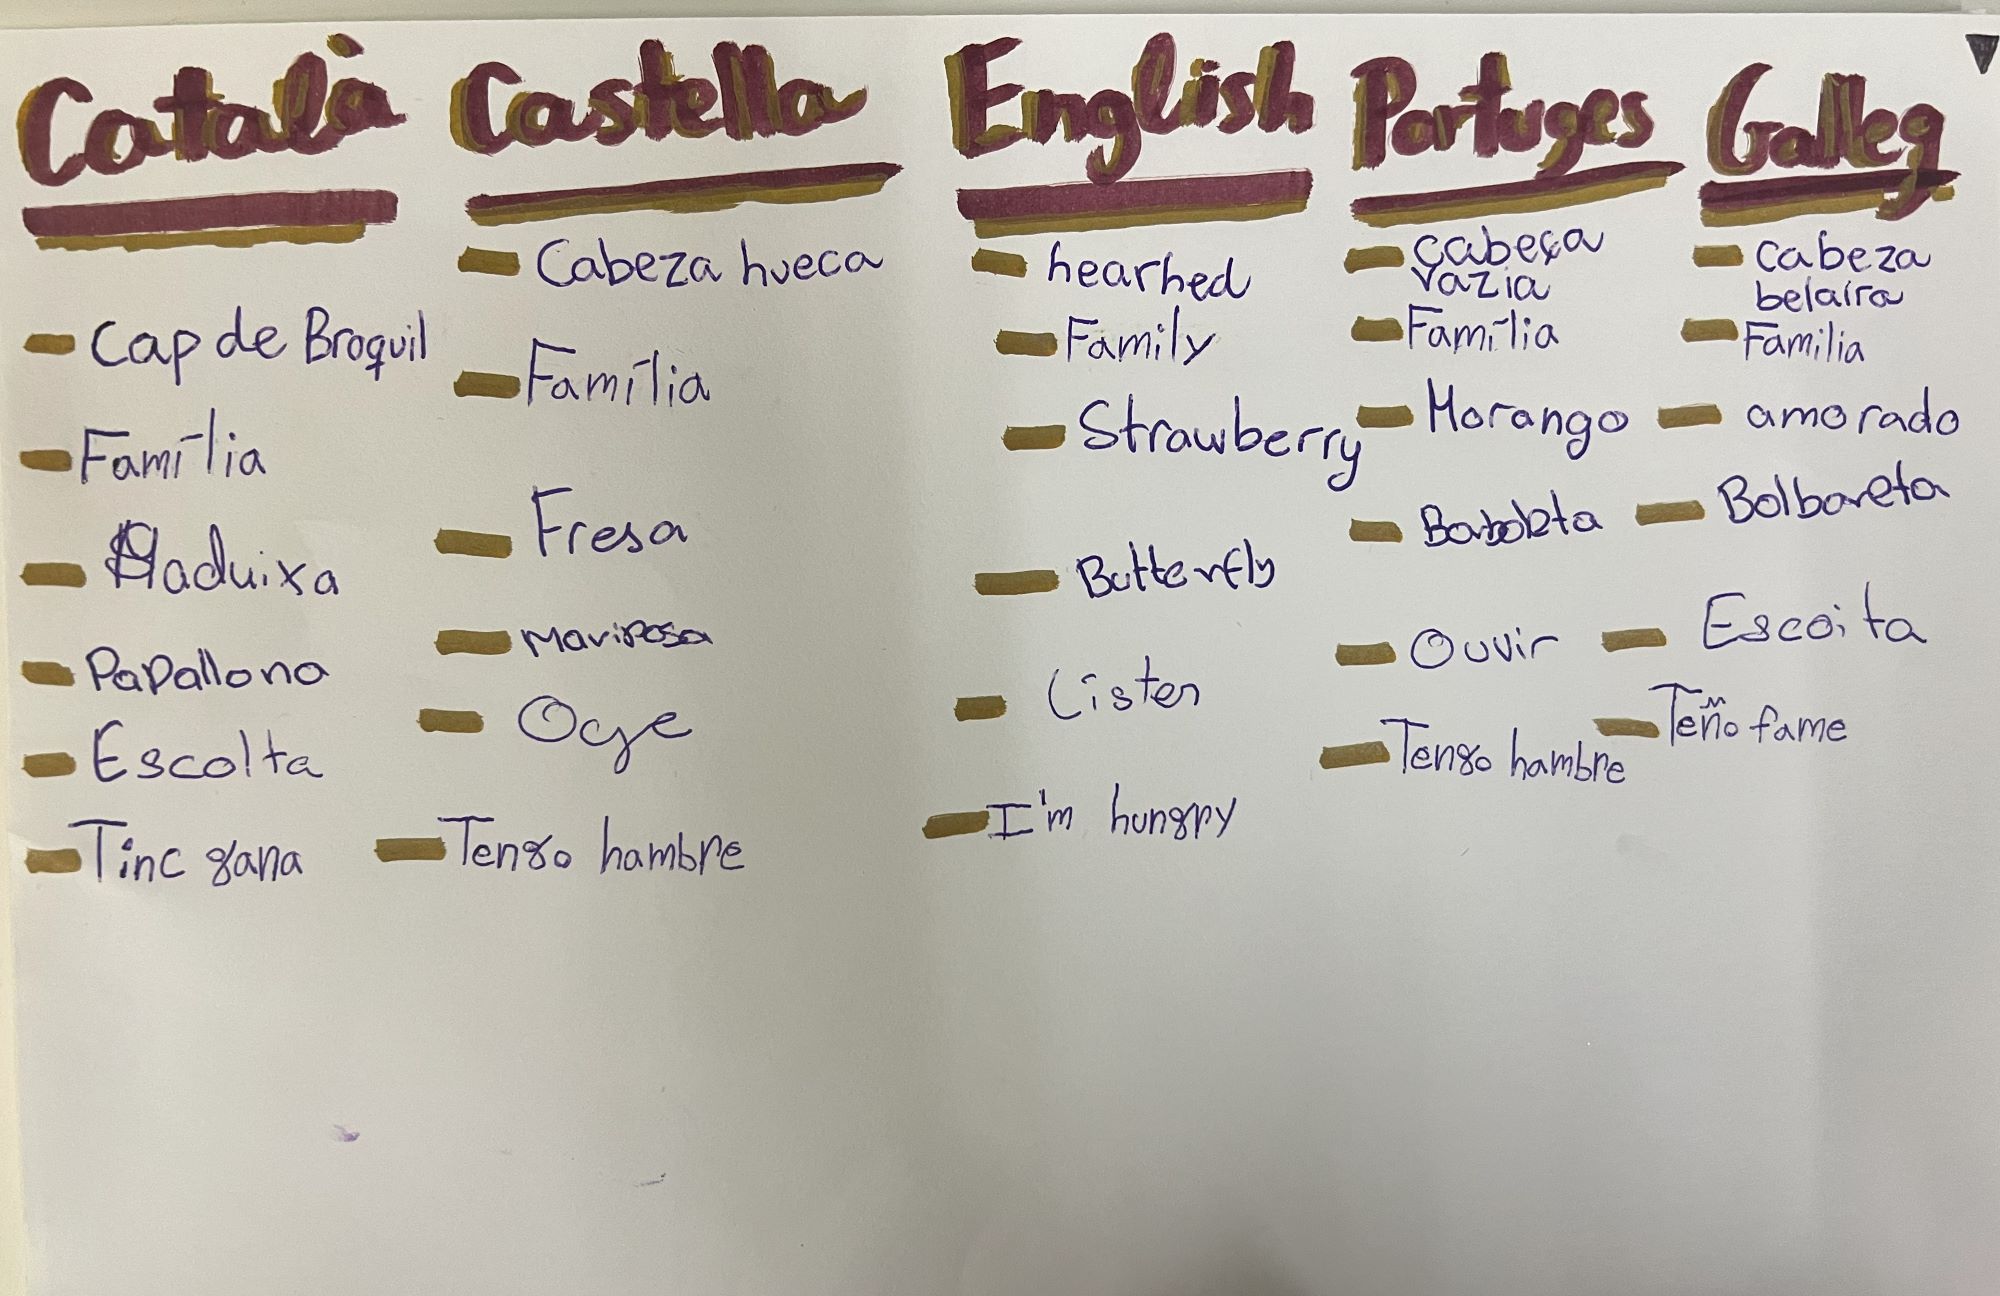 Català
Cap de Broquil
Família
Maduixa
Papallona
Escolta
Tinc gana
Castella
Cabeza hueca
Família
Fresa
Mariposa
Oye
Tengo hambre
English
hearhed
Family
Strawberry
Butterfly
Listen
I'm hungry
Portuges
cabeça
vazia
Família
Morango
Borboleta
Ouvir
Tengo hambre
Galleg
cabeza
belaira
Familia
amorado
Bolboreta
Escoita
Teño fame